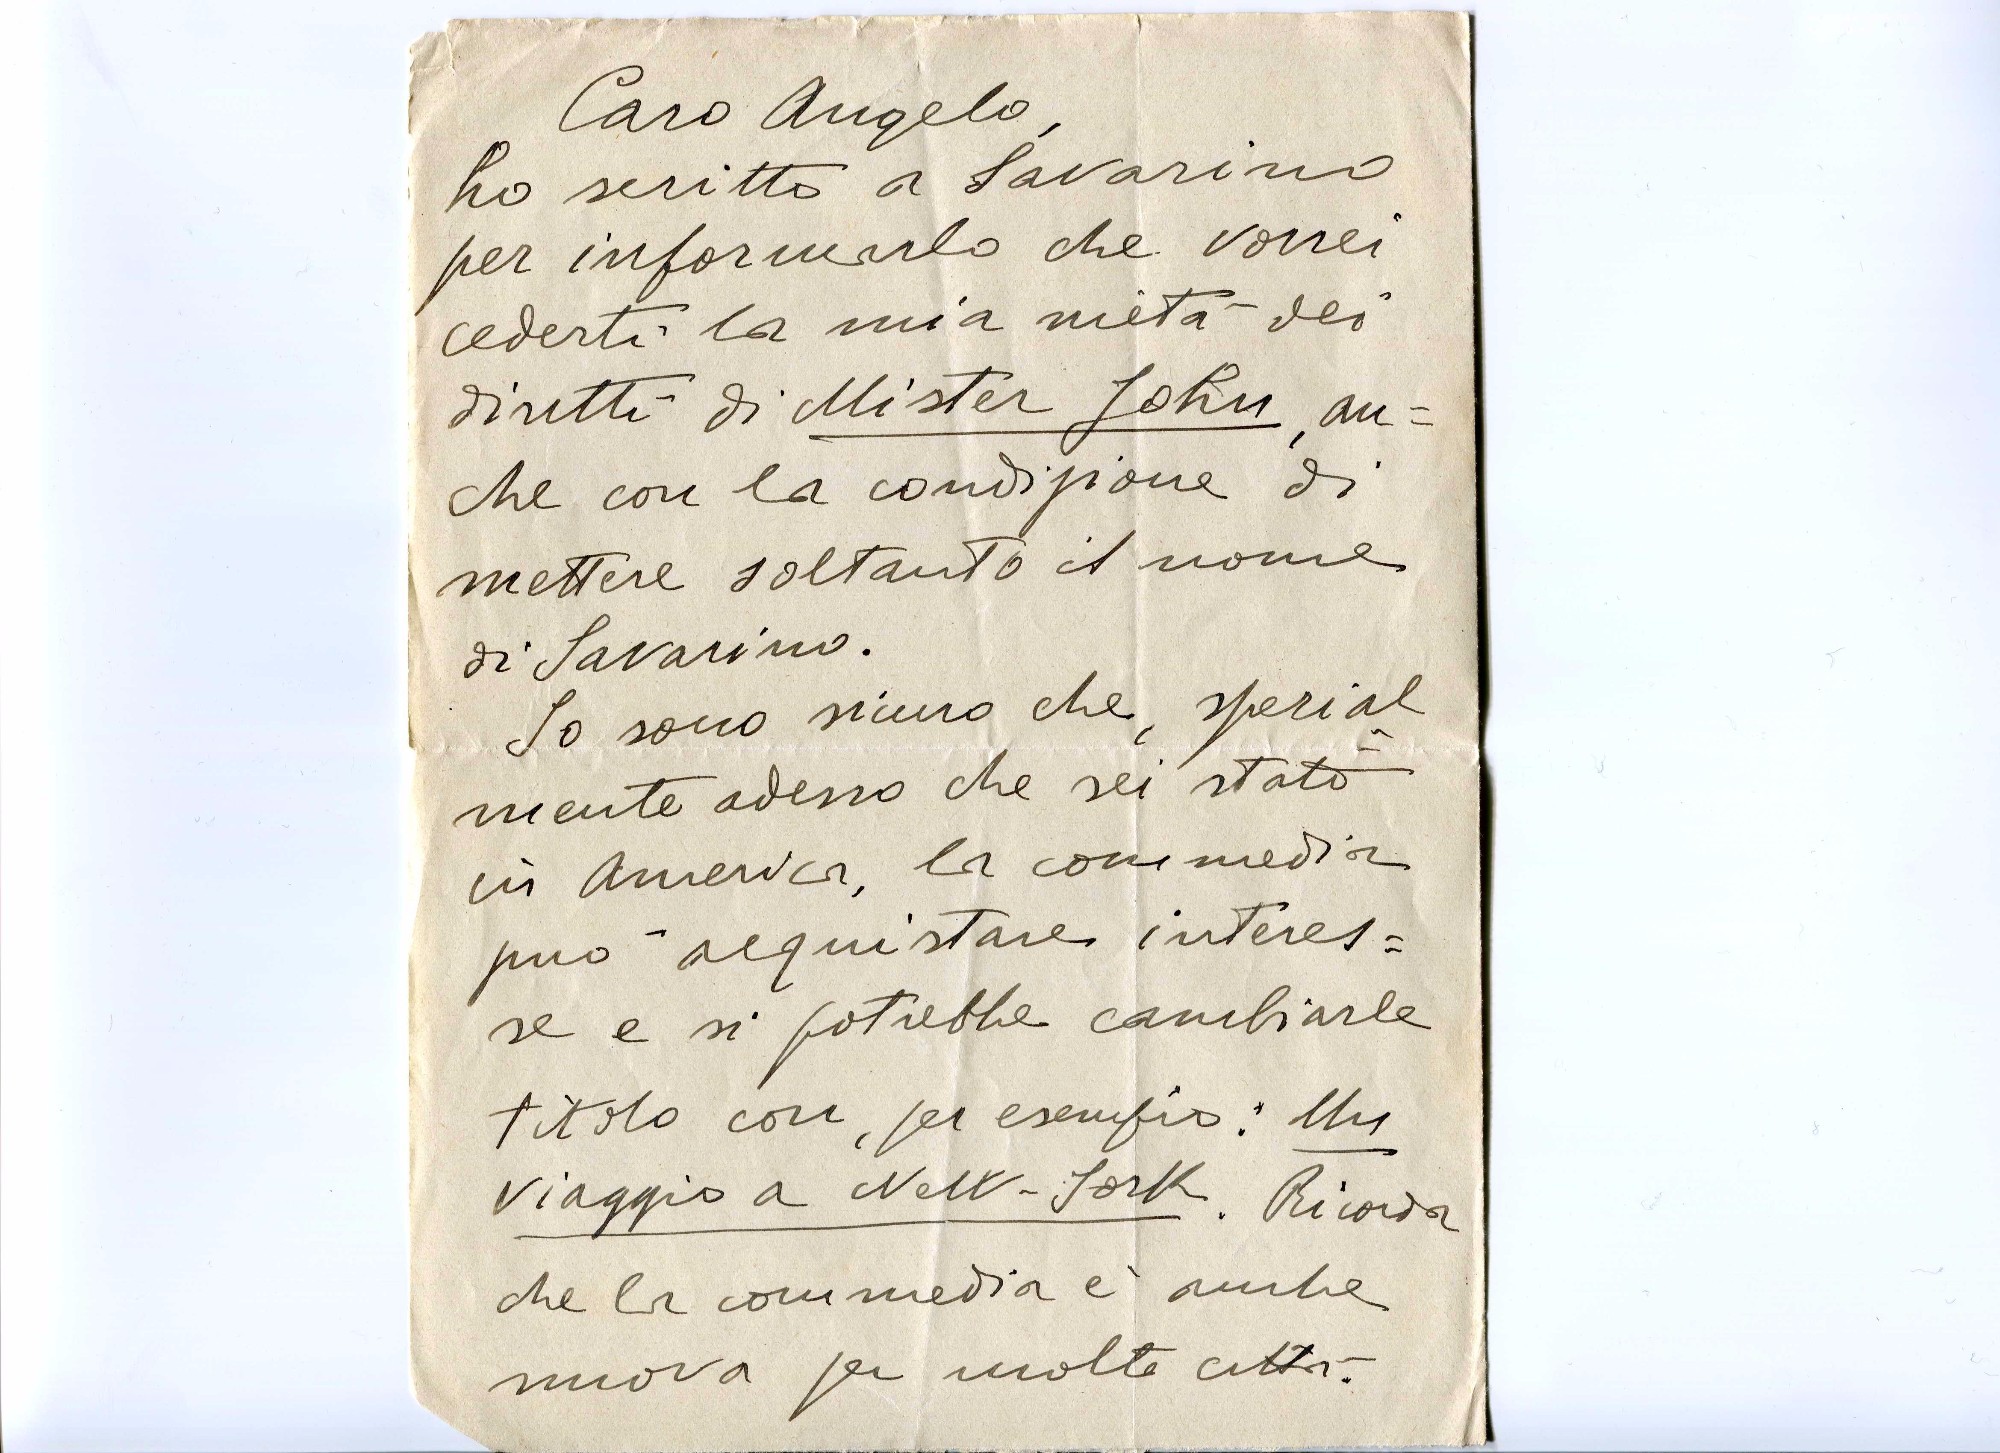 Caro Angelo,
ho scritto a Savarino
per informarlo che vorrei
cederti la mia metà dei
diritti di Mister John, an=
che con la condizione di
mettere soltanto il nome
di Savarino.
Io sono sicuro che, special
=
mente adesso che sei stato
in America, la commedia
può acquistare interes=
se e si potrebbe cambiarle
titolo con, per esempio: Un
viaggio a New-York. Ricorda
che la commedia è anche
nuova per molte città.